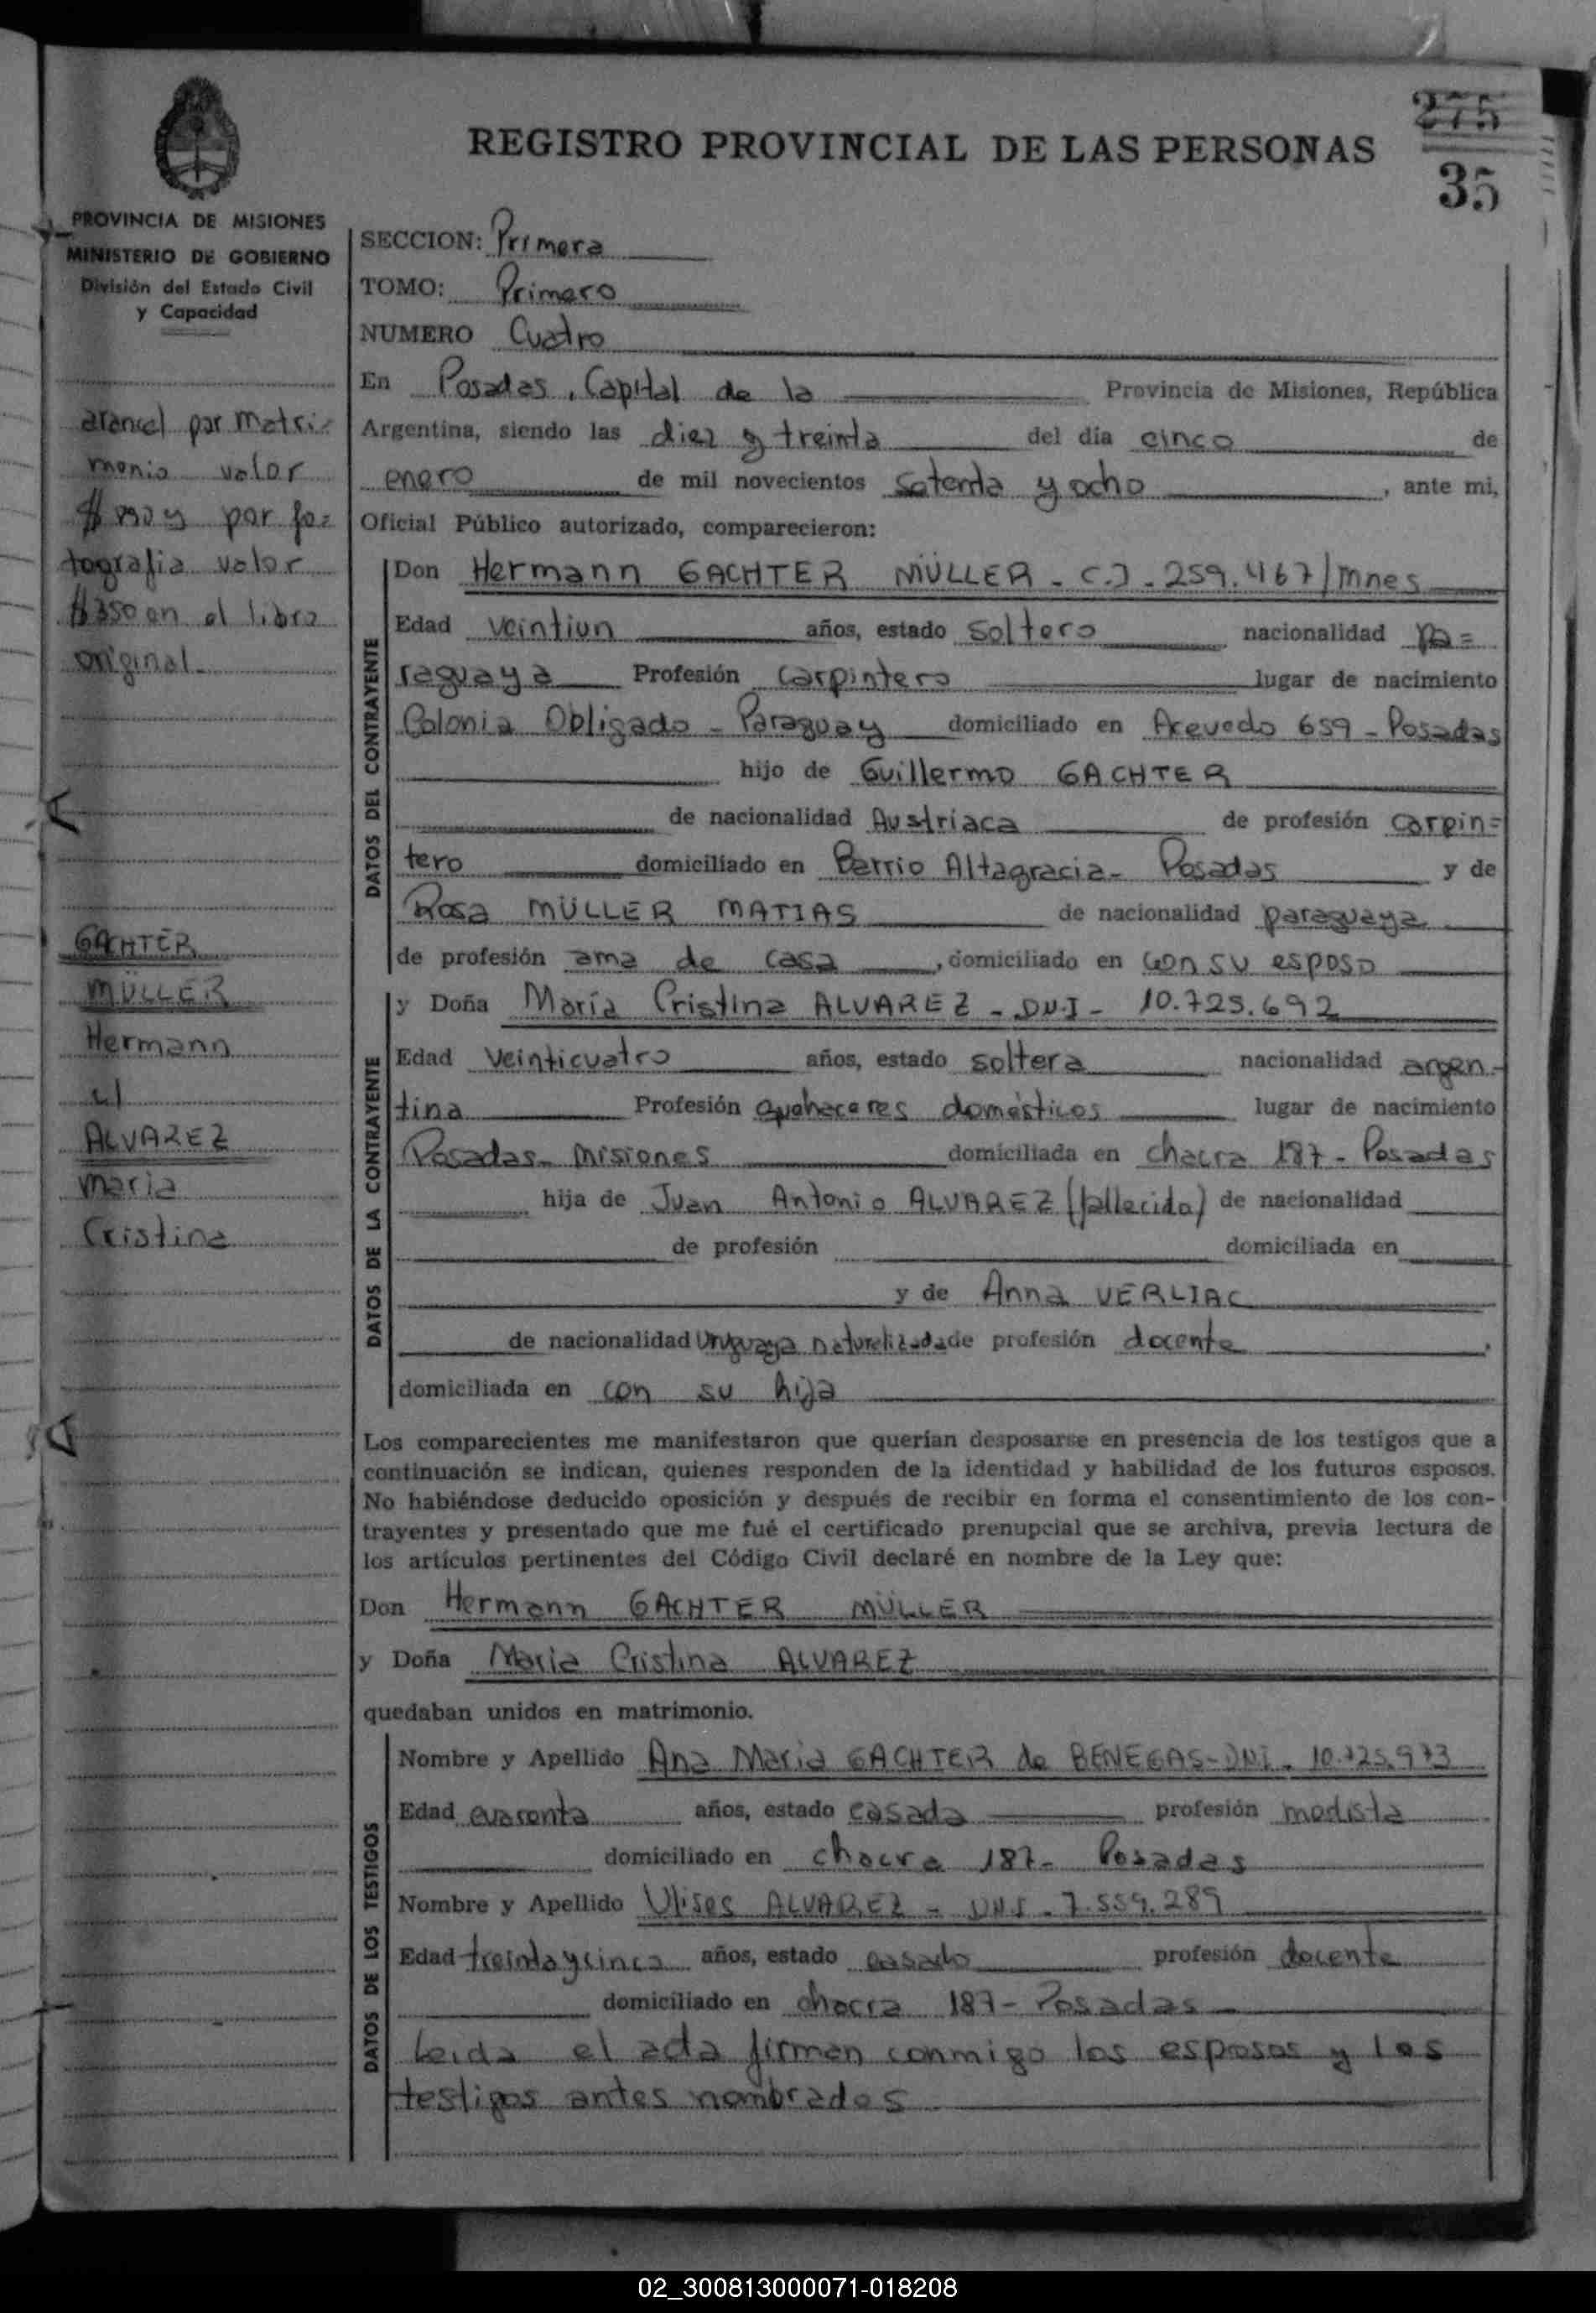 275
35
REGISTRO PROVINCIAL DE LAS PERSONAS
PROVINCIA DE MISIONES
MINISTERIO DE GOBIERNO
División del Estado Civil
y Capacidad
SECCION: Primera
TOMO: Primero
NUMERO Cuatro
En Posadas, Capital de la Provincia de Misiones, República
Argentina, siendo las diez y treinta del día cinco de
enero de mil novecientos setenta y ocho, ante mi,
Oficial Público autorizado, comparecieron:
arancel por matri=
monio valor
y por fo=
tografia valor
$350 en el libro
original
DATOS DEL CONTRAYENTE
Don Hermann GACHTER MÜLLER - C.I. 259.467/Mnes
Edad veintiun años, estado soltero nacionalidad pa=
raguaya Profesión carpintero lugar de nacimiento
Colonia Obligado - Paraguay domiciliado en Acevedo 659 - Posadas
hijo de Guillermo GACHTER
de nacionalidad Austriaca de profesión carpin=
tero domiciliado en Barrio Altagracia - Posadas y de
Rosa MÜLLER MATIAS de nacionalidad paraguaya
de profesión ama de casa, domiciliado en con su esposo
GACHTER
MÜLLER
Hermann
c/
ALVAREZ
María
Cristina
DATOS DE LA CONTRAYENTE
y Doña María Cristina ALVAREZ - DNI - 10.725.692
Edad veinticuatro años, estado soltera nacionalidad argen-
tina Profesión quehaceres domésticos lugar de nacimiento
Posadas - Misiones domiciliada en chacra 187 - Posadas
hija de Juan Antonio ALVAREZ (fallecido) de nacionalidad
de profesión domiciliada en
y de Anna VERLIAC
de nacionalidad Uruguaya naturalizada de profesión docente,
domiciliada en con su hija
Los comparecientes me manifestaron que querían desposarse en presencia de los testigos que a
continuación se indican, quienes responden de la identidad y habilidad de los futuros esposos.
No habiéndose deducido oposición y después de recibir en forma el consentimiento de los con-
trayentes y presentado que me fué el certificado prenupcial que se archiva, previa lectura de
los artículos pertinentes del Código Civil declaré en nombre de la Ley que:
Don Hermann GACHTER MÜLLER
y Doña María Cristina ALVAREZ
quedaban unidos en matrimonio.
DATOS DE LOS TESTIGOS
Nombre y Apellido Ana María GACHTER de BENEGAS - DNI - 10.725.973
Edad cuarenta años, estado casada profesión modista
domiciliado en chacra 187 - Posadas
Nombre y Apellido Ulises ALVAREZ - DNI - 7.559.289
Edad treinta y cinco años, estado casado profesión docente
domiciliado en chacra 187 - Posadas
Leida el acta firman conmigo los esposos y los
testigos antes nombrados
02_300813000071-018208